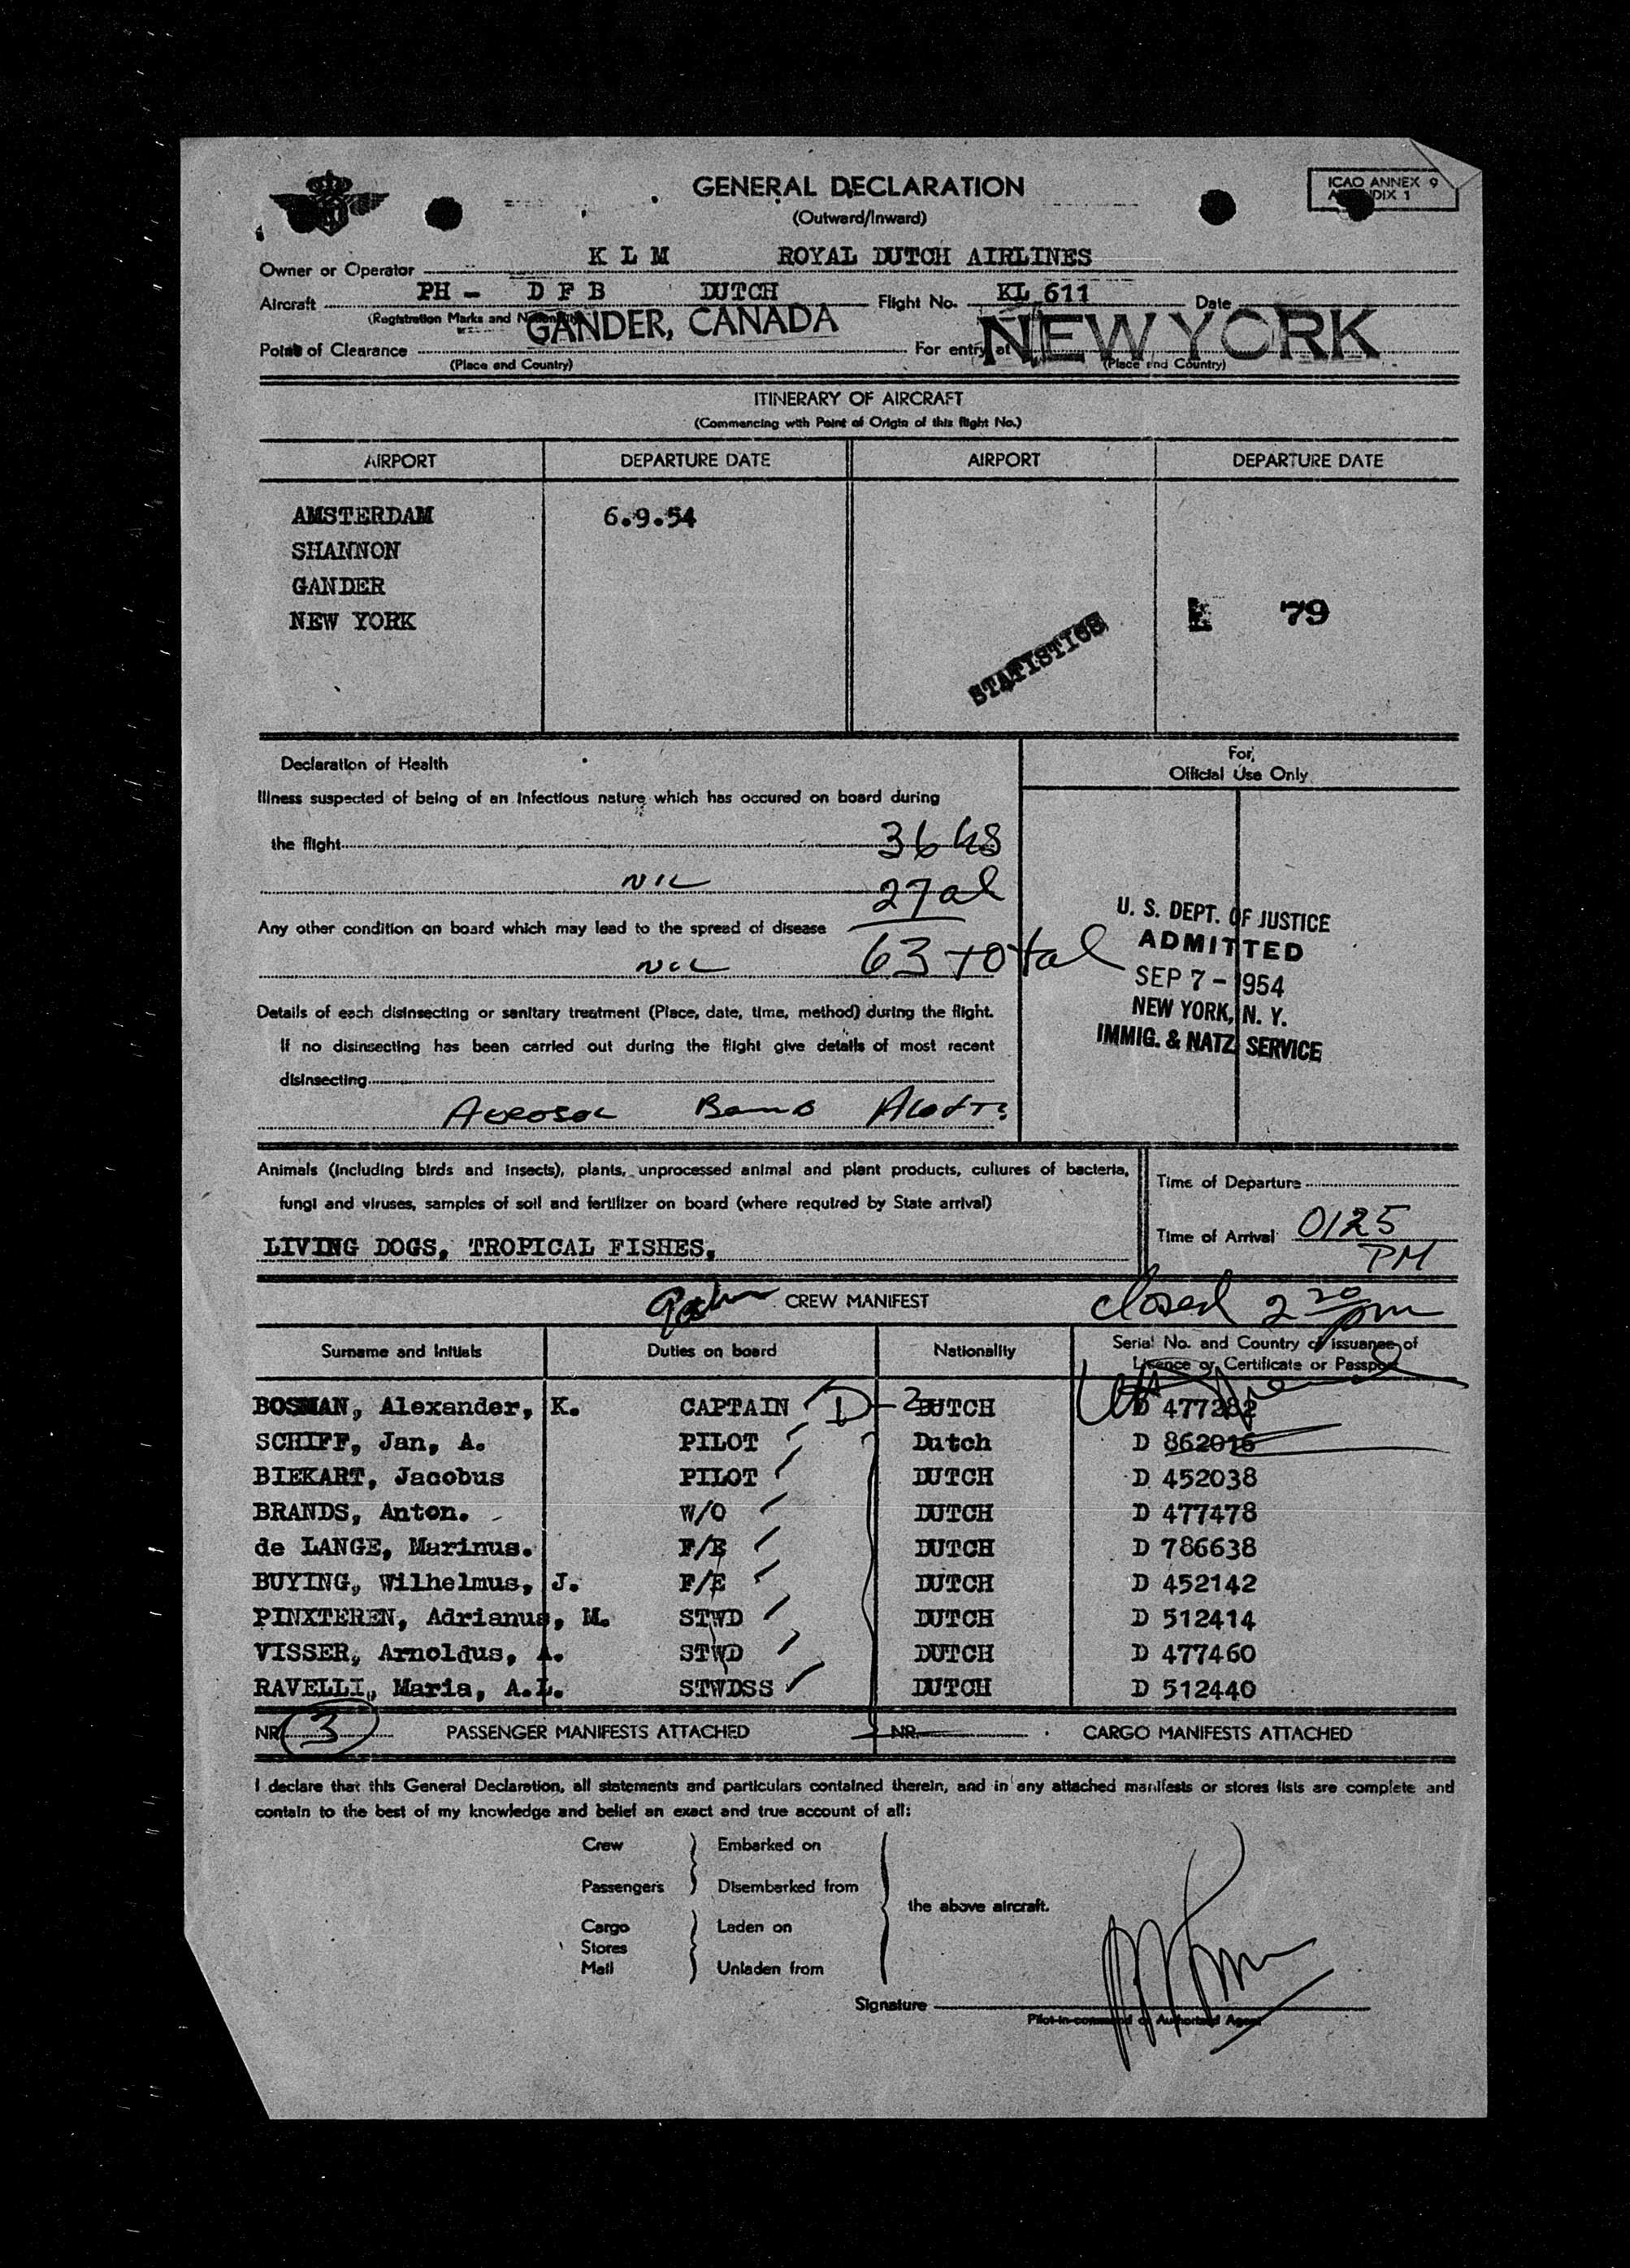 GENERAL DECLARATION
(Outward/Inward)
ICAO ANNEX 9
DIX 1
Owner or Operator K L M ROYAL DUTCH AIRLINES
Aircraft PH - D F B DUTCH Flight No. KL 611 Date
(Registration Marks and
GANDER, CANADA NEW YORK
Point of Clearance For entry at
(Place and Country) (Place and Country)
ITINERARY OF AIRCRAFT
(Commencing with Point of Origin of this flight No.)
AIRPORT DEPARTURE DATE AIRPORT DEPARTURE DATE
AMSTERDAM 6.9.54
SHANNON
GANDER
NEW YORK
E 79
STATISTICS
Declaration of Health
For
Official Use Only
Illness suspected of being of an infectious nature which has occured on board during
the flight
36 US
NIL 27 al
Any other condition on board which may lead to the spread of disease
NIL 63 total
U. S. DEPT. OF JUSTICE
ADMITTED
SEP 7 - 1954
NEW YORK, N. Y.
IMMIG. & NATZ SERVICE
Details of each disinsecting or sanitary treatment (Place, date, time, method) during the flight.
If no disinsecting has been carried out during the flight give details of most recent
disinsecting
Aerosol Bomb
Animals (including birds and insects), plants, unprocessed animal and plant products, cultures of bacteria,
fungi and viruses, samples of soil and fertilizer on board (where required by State arrival)
LIVING DOGS, TROPICAL FISHES,
Time of Departure
Time of Arrival 0125
PM
CREW MANIFEST closed 2 20 pm
Surname and Initials Duties on board Nationality Serial No. and Country of issuance of
Licence or Certificate or Passport
BOSMAN, Alexander, K. CAPTAIN D-2 DUTCH D 477282
SCHIFF, Jan, A. PILOT Dutch D 862016
BIEKART, Jacobus PILOT DUTCH D 452038
BRANDS, Anton. W/O DUTCH D 477478
de LANGE, Marinus. F/E DUTCH D 786638
BUYING, Wilhelmus, J. F/E DUTCH D 452142
PINXTEREN, Adrianus, M. STWD DUTCH D 512414
VISSER, Arnoldus, A. STWD DUTCH D 477460
RAVELLI, Maria, A.L. STWDSS DUTCH D 512440
NR 3 PASSENGER MANIFESTS ATTACHED NR. CARGO MANIFESTS ATTACHED
I declare that this General Declaration, all statements and particulars contained therein, and in any attached manifests or stores lists are complete and
contain to the best of my knowledge and belief an exact and true account of all:
Crew Embarked on
Passengers Disembarked from
the above aircraft.
Cargo Laden on
Stores
Mail Unladen from
Signature
Pilot-in-command or Authorized Agent